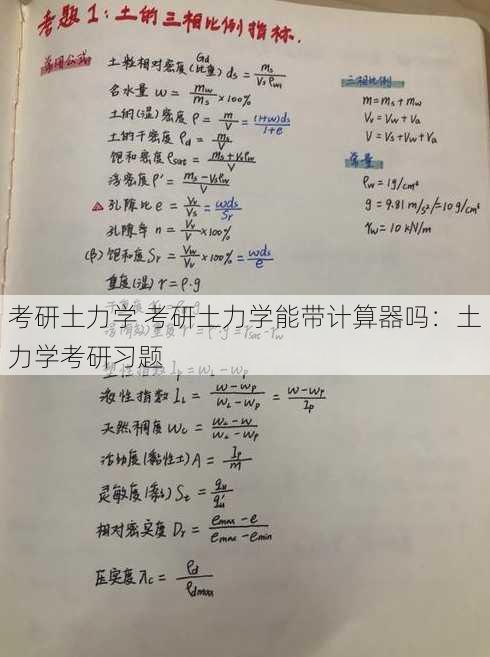 考题1：土的三相比例指标.
常用公式
土粒相对密度(比重) Gd ds = ms / Vsρw1
含水量 w = mw / ms ×100%
土的(湿)密度 ρ = m / V = (1+w)ds / 1+e
土的干密度 ρd = ms / V
饱和密度 ρsat = ms+Vvρw / V
浮密度 ρ' = ms-Vsρw / V
孔隙比 e = Vv / Vs = wds / Sr
孔隙率 n = Vv / V ×100%
饱和度 Sr = Vw / Vv ×100% = wds / e
重度(湿) r = ρ·g
三相比例
m = ms + mw
Vv = Vw + Va
V = Vs + Vw + Va
常量
ρw = 1g/cm³
g = 9.81 m/s²/=10 g/cm³
rw = 10 kN/m
考研土力学 考研土力学能带计算器吗：土
力学考研习题
塑性指数 Ip = wL - wp
液性指数 IL = w-wp / wL-wp = w-wp / Ip
天然稠度 wc = wL-w / wL-wp
活动度(黏性土) A = Ip / m
灵敏度 St = qu / q'u
相对密实度 Dr = emax-e / emax-emin
压实度 λc = ρd / ρdmax